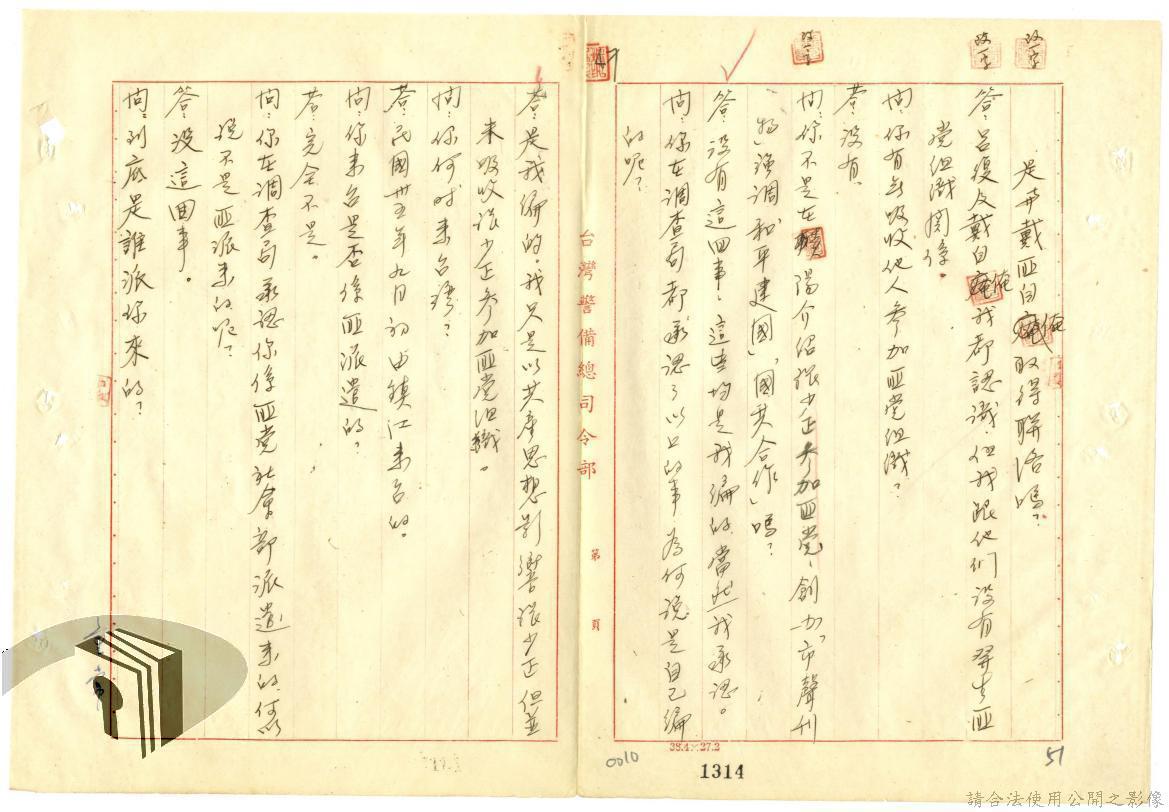 是弄戴匪白俺取得聯洛嗎？
答：呂復及戴白俺我都認識，但我跟他们沒有發生匪
党组織関係。
問：你有無吸收他人參加匪党组織？
荅：沒有
問：你不是在陽介绍張少正參加匪党、創办「市聲刊
物」强调和平建國」、「國共合作」嗎？
答：沒有這回事，這些均是我编的，當然我承認。
問：你在調查局都承認了以上的事，為何說是自己编
的呢？
荅：是我编的，我只是以共產思想影響張少正但並
未吸收張少正參加匪党组織。
問：你何时来台灣？
荅：民國卅五年九月初由鎮江来台的。
問：你来台是否係匪派遣的？
荅：完全不是。
問：你在調查局承認你係匪党社會部派遣来的，何以
說不是匪派来的呢？
答：沒這回事。
問：到底是誰派你來的？
台灣警備總司令部
第 頁
49
38.4×27.2
0010
1314
51
請合法使用公開之影像